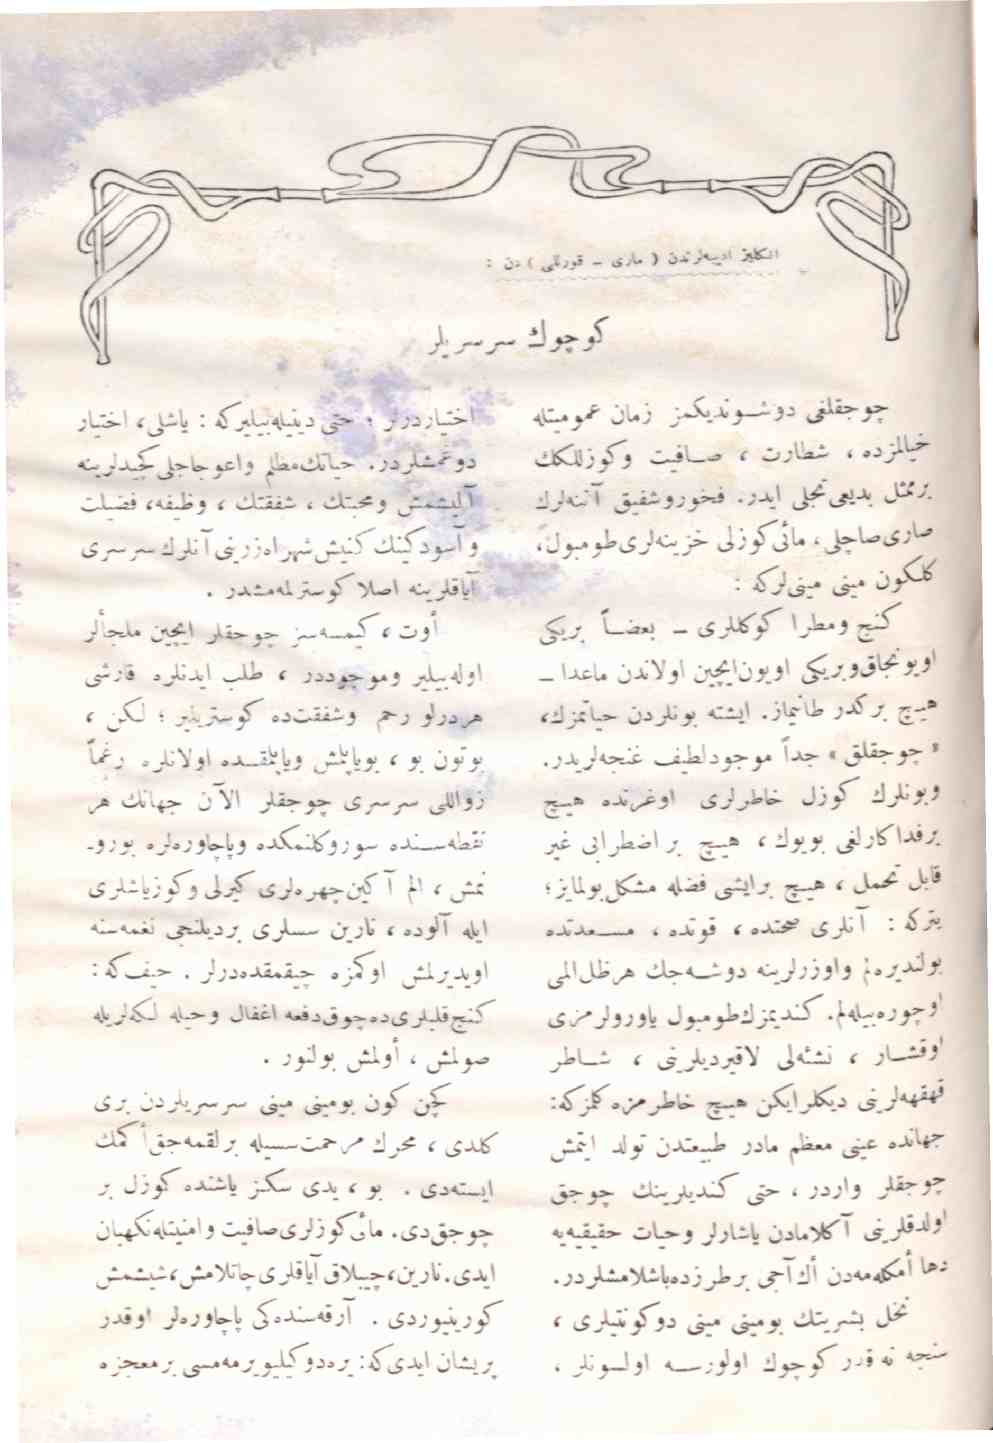 انكليز اديبه‌لرندن ( ماری ـ قورللی ) دن :
كوچوك سرسریلر
چوجقلغی دوشوندیكمز زمان عمومیتله
خیالمزده ، شطارت ، صافیت وكوزللكك
برممثل بدیعی تجلی ایدر. فخور و شفیق آننه‌لرك
صاری صاچلی ، مائی كوزلی خزینه‌لری طومبول،
كلكون مینی مینی‌لركه :
كنج ومطرا كوكللری ـ بعضاً بریكی
اویونجاق و بریكی اویون ایچین اولاندن ماعدا ـ
هیچ بر كدر طانیماز. ایشته بونلردن حیاتمزك،
« چوجقلق » جداً موجود لطیف غنجه‌لریدر.
وبونلرك كوزل خاطرلری اوغرنده هیچ
برفداكارلغی بویوك ، هیچ بر اضطرابی غیر
قابل تحمل ، هیچ برایشی فضله مشكل بولمایز؛
یتركه : آنلری صحتده ، قوتده ، مسعدتده
بولندیره‌لم واوزرلرینه دوشه‌جك هرظل المی
اوچوره‌بیله‌لم. كندیمزك طومبول یاورولرمزی
اوقشار ، نشئه‌لی لاقیردیلرینی ، شاطر
قهقهه‌لرینی دیكلرایكن هیچ خاطرمزه كلمزكه:
جهانده عینی معظم مادر طبیعتدن تولد ایتمش
چوجقلر واردر ، حتی كندیلرینك چوجق
اولدقلرینی آكلامادن یاشارلر وحیات حقیقیه‌یه
دها أمكله‌مه‌دن أك آجی برطرزده باشلامشلردر.
نخل بشریتك بومینی مینی دوكونتیلری ،
سنجه نه قدر كوچوك اولورسه اولسونلر ،
اختیاردرلر ؛ حتی دینیله‌بیلیركه : یاشلی ، اختیار
دوغمشلردر. حیاتك مظلم واعوجاجلی كچیدلرینه
آلیشمش ومحبتك ، شفقتك ، وظیفه، فضیلت
وآسودكینك كنیش شهراه‌زرینی آنلرك سرسری
آیاقلرینه اصلا كوسترلمه‌مشدر .
أوت ، كیمسه‌سز چوجقلر ایچین ملجألر
اوله‌بیلیر وموجوددر ، طلب ایدنلره قارشی
هردرلو رحم وشفقت‌ده كوستریلیر ؛ لكن ،
بوتون بو ، بویاپلمش ویاپلمقده اولانلره رغماً
زواللی سرسری چوجقلر الآن جهانك هر
نقطه‌سنده سوروكلنمكده وپاچاوره‌لره بورو-
نمش ، الم آكین چهره‌لری كیرلی وكوزیاشلری
ایله آلوده ، نارین سسلری بردیلنجی نغمه‌سنه
اویدیرلمش اوكمزه چیقمقده‌درلر . حیف‌كه :
كنج قلبلری ده چوق دفعه اغفال وحیله لكه‌لریله
صولمش ، أولمش بولنور .
كچن كون بومینی مینی سرسریلردن بری
كلدی ، محرك مرحمت سسیله برلقمه‌جق أكمك
ایسته‌دی . بو ، یدی سكز یاشنده كوزل بر
چوجق‌دی. مائی كوزلری صافیت وامنیتله نكهبان
ایدی. نارین، چیپلاق آیاقلری چاتلامش، شیشمش
كورینیوردی . آرقه‌سنده‌كی پاچاوره‌لر اوقدر
پریشان ایدی‌كه: یره دوكیلیویرمه‌مسی برمعجزه